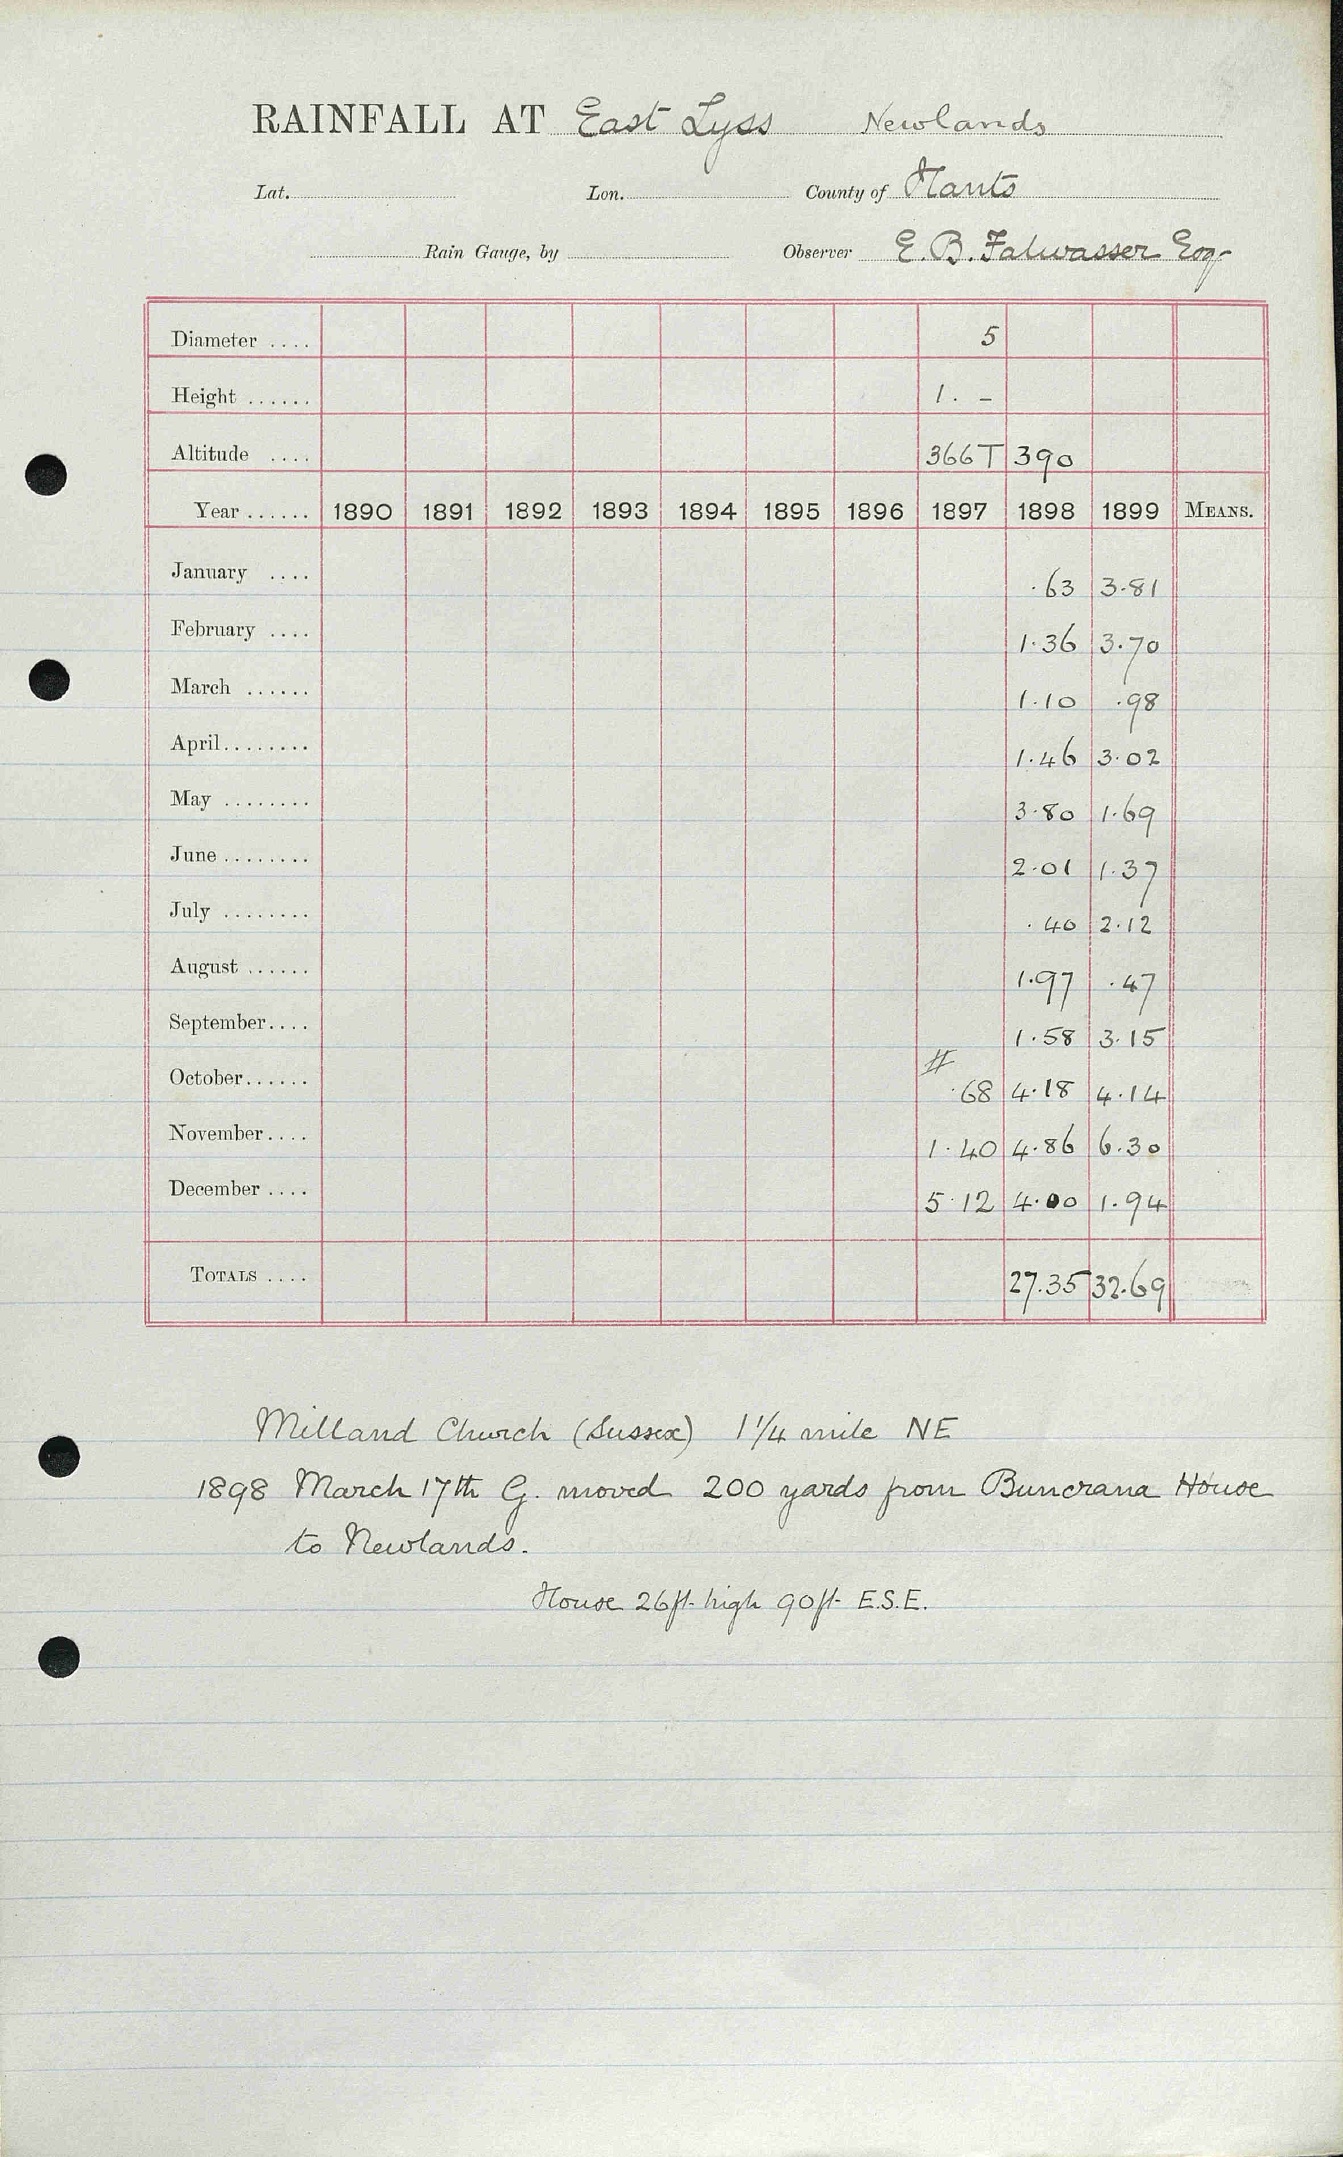 RAINFALL AT East Lyss Newlands
Lat. Lon. County of Hants
Rain Gauge, by Observer E. B. Falwasser Esq.
Diameter .... 5
Height ...... 1. –
Altitude .... 366T 390
Year ...... 1890 1891 1892 1893 1894 1895 1896 1897 1898 1899 MEANS.
January .... .63 3.81
February .... 1.36 3.70
March ...... 1.10 .98
April........ 1.46 3.02
May ........ 3.80 1.69
June ........ 2.01 1.37
July ........ .40 2.12
August ...... 1.97 .47
September.... 1.58 3.15
#
October...... .68 4.18 4.14
November.... 1.40 4.86 6.30
December .... 5.12 4.00 1.94
TOTALS .... 27.35 32.69
Milland Church (Sussex) 1 1/4 mile NE
1898 March 17th G. moved 200 yards from Buncrana House
to Newlands.
House 26ft. high 90ft. E.S.E.